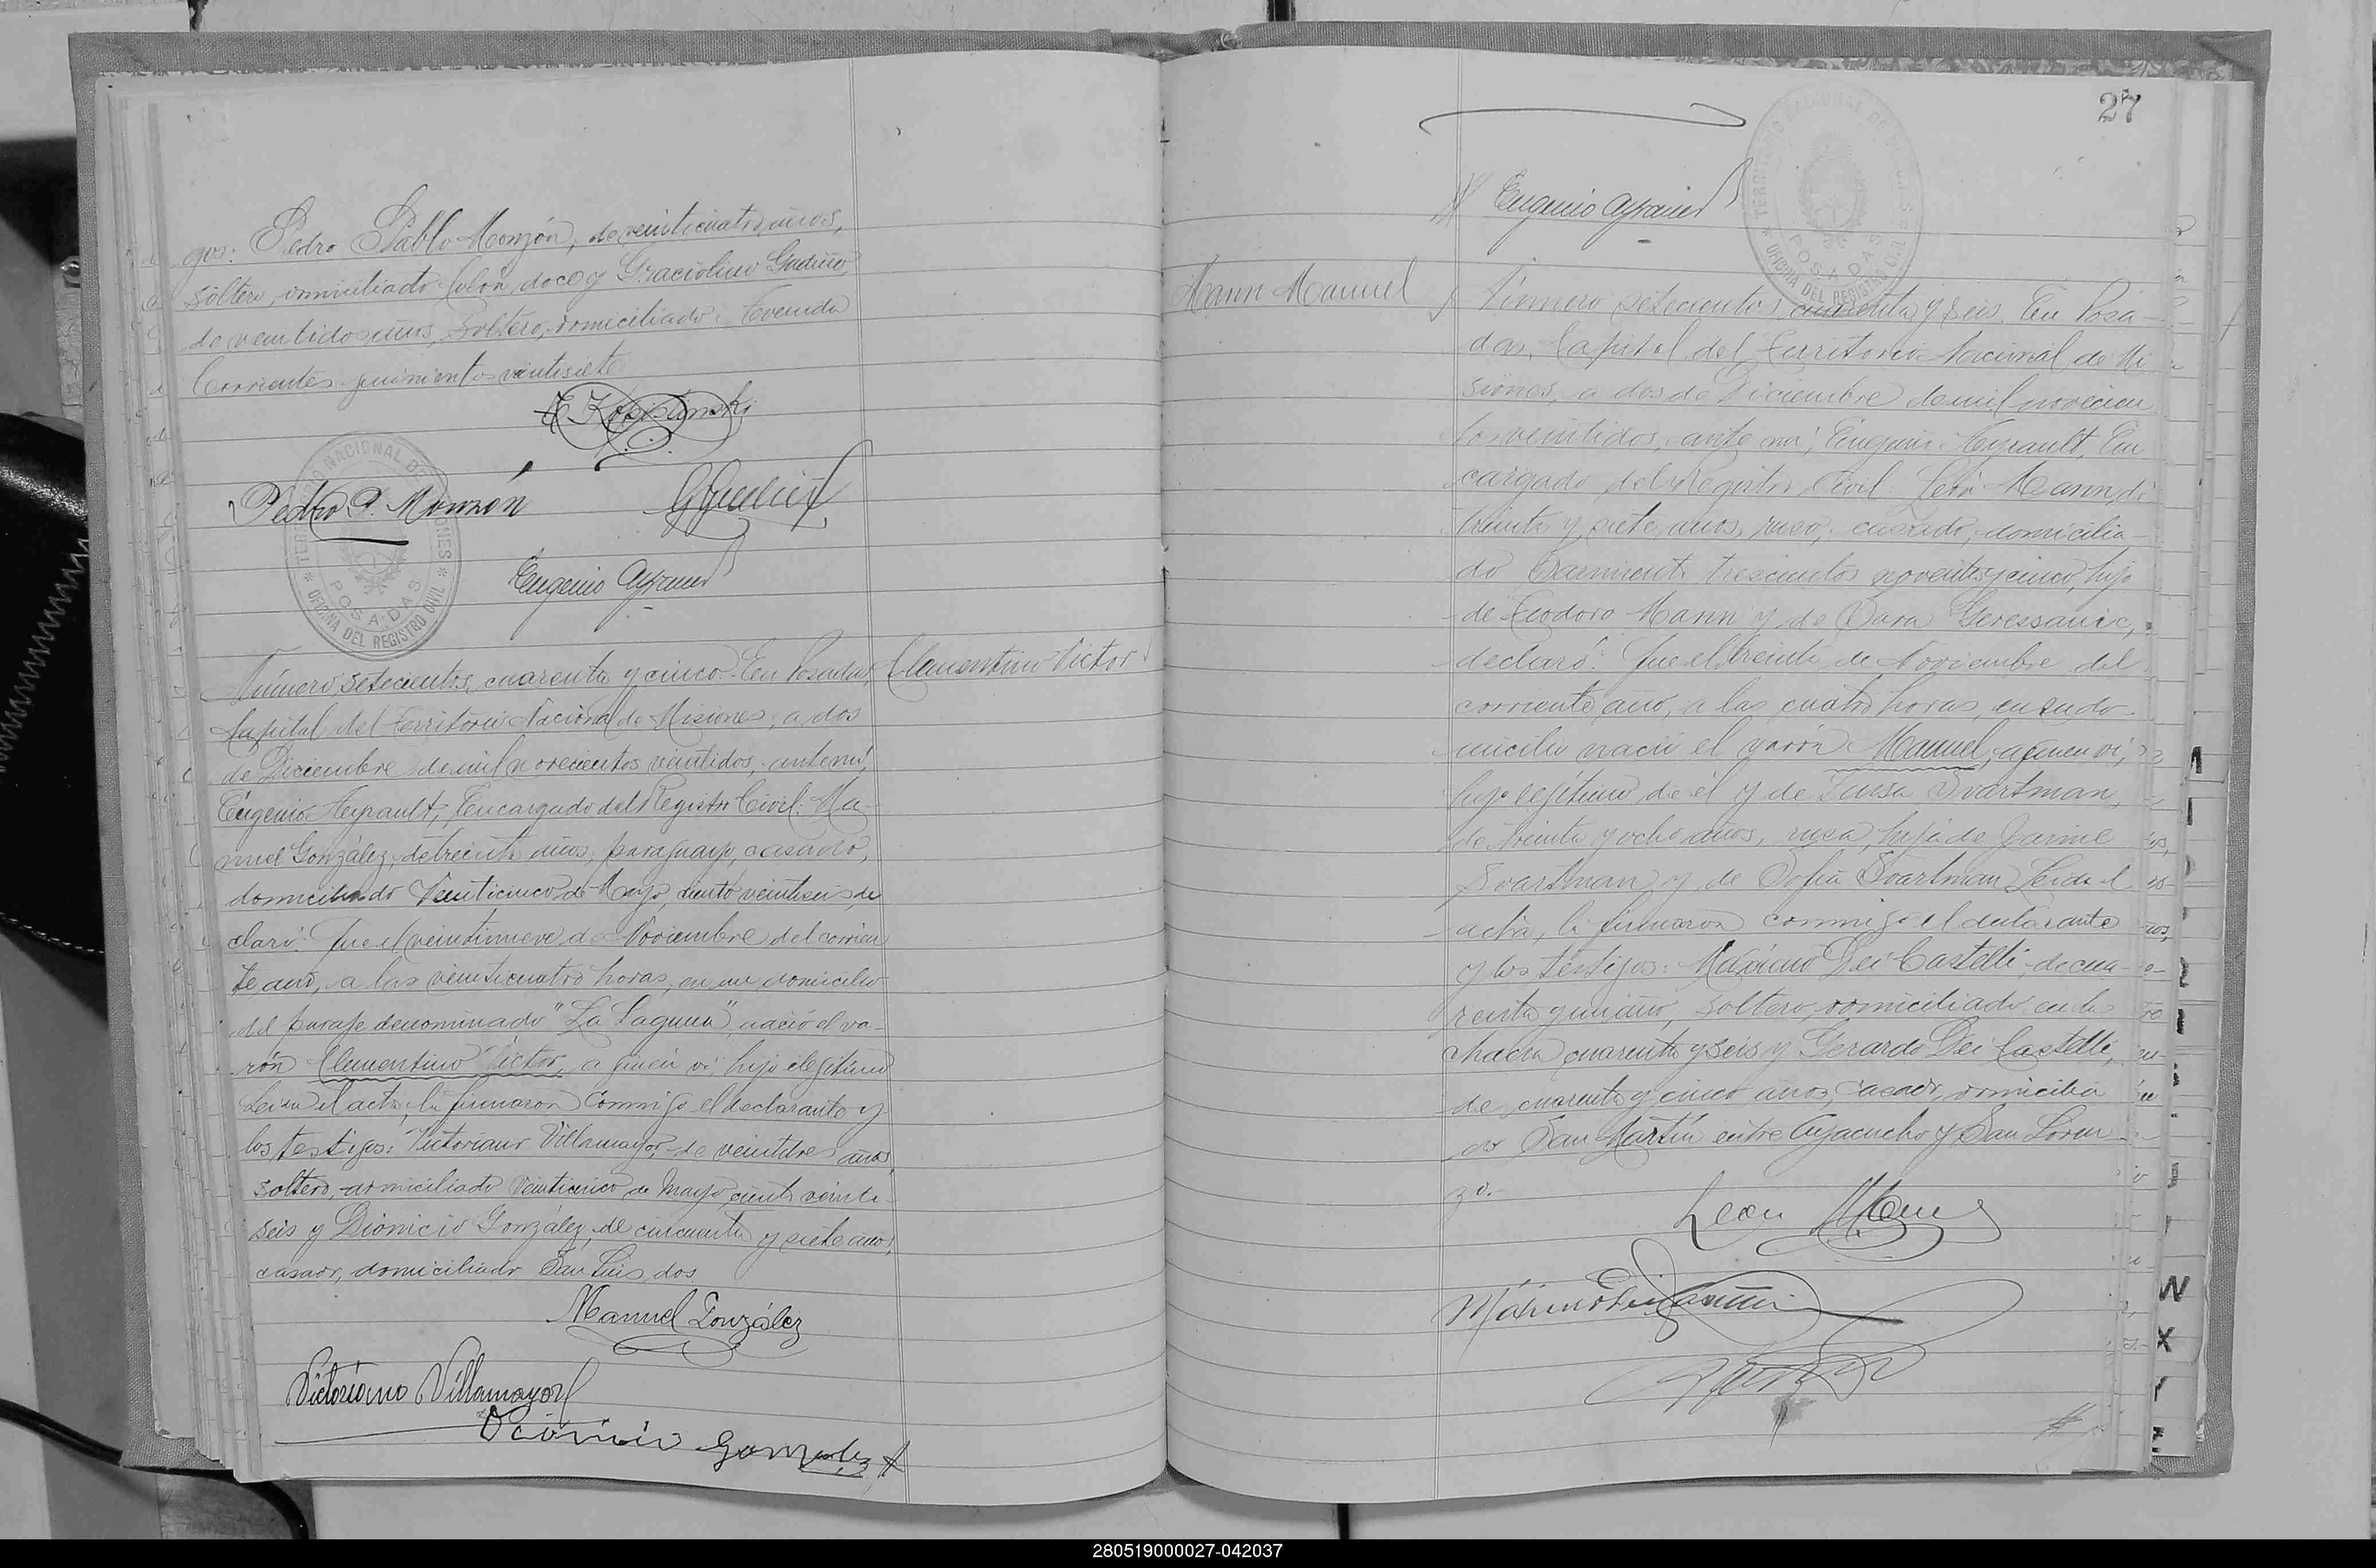 gos: Pedro Pablo Monzón, de veinticuatro años,
soltero, domiciliado Colón doce y Graciolino Gudiño,
de veintidos años, soltero, domiciliado Avenida
Corrientes quinientos veintisiete
Pedro P. Monzón
Eugenio Ayrault
Número setecientos cuarenta y cinco. En Posadas,
Clementino Victor
Capital del Territorio Nacional de Misiones, a dos
de Diciembre de mil novecientos veintidos, ante mí,
Eugenio Ayrault, Encargado del Registro Civil: Ma-
nuel González, de treinta años, paraguayo, casado,
domiciliado Veinticinco de Mayo, ciento veintiseis, de
claró: Que el veintinueve de Noviembre del corrien
te año, a las veinticuatro horas, en su domicilio
del paraje denominado "La Laguna", nació el va-
rón Clementino Victor, a quien vi, hijo ilegítimo
Leida el acta, la firmaron conmigo el declarante y
los testigos: Victoriano Villamayor, de veintitres años,
soltero, domiciliado Veinticinco de Mayo, ciento veinti-
seis y Dionicio González, de cincuenta y siete años,
casado, domiciliado San Luis, dos.
Manuel González
Victoriano Villamayor
Dionicio Gonzalez
TERRITORIO NACIONAL DE MISIONES
POSADAS
OFICINA DEL REGISTRO CIVIL
27
Eugenio Ayrault
TERRITORIO NACIONAL DE MISIONES
POSADAS
OFICINA DEL REGISTRO CIVIL
Mann Manuel
Número setecientos cuarenta y seis. En Posa-
das, Capital del Territorio Nacional de Mi
siones, a dos de Diciembre de mil novecien
tos veintidos, ante mí, Eugenio Ayrault, En
cargado del Registro Civil: León Mann, de
treinta y siete años, ruso, casado, domicilia-
do Sarmiento trescientos noventa y cinco, hijo
de Teodoro Mann y de Sara
declaró: Que el treinta de Noviembre del
corriente año, a las cuatro horas, en su do-
micilio nació el varón Manuel, a quien vi,
hijo legítimo de él y de Luisa Svartman,
de treinta y ocho años, rusa, hija de Jaime
Svartman y de Sofia Svartman. Leida el
acta, la firmaron conmigo el declarante
y los testigos: Máximo Dei Castelli, de cua-
renta y un año, soltero, domiciliado en la
chacra cuarenta y seis y Gerardo Dei Castelli,
de cuarenta y cinco años, casado, domicilia
do San Martín entre Ayacucho y San Loren
zo.
León Mann
280519000027-042037